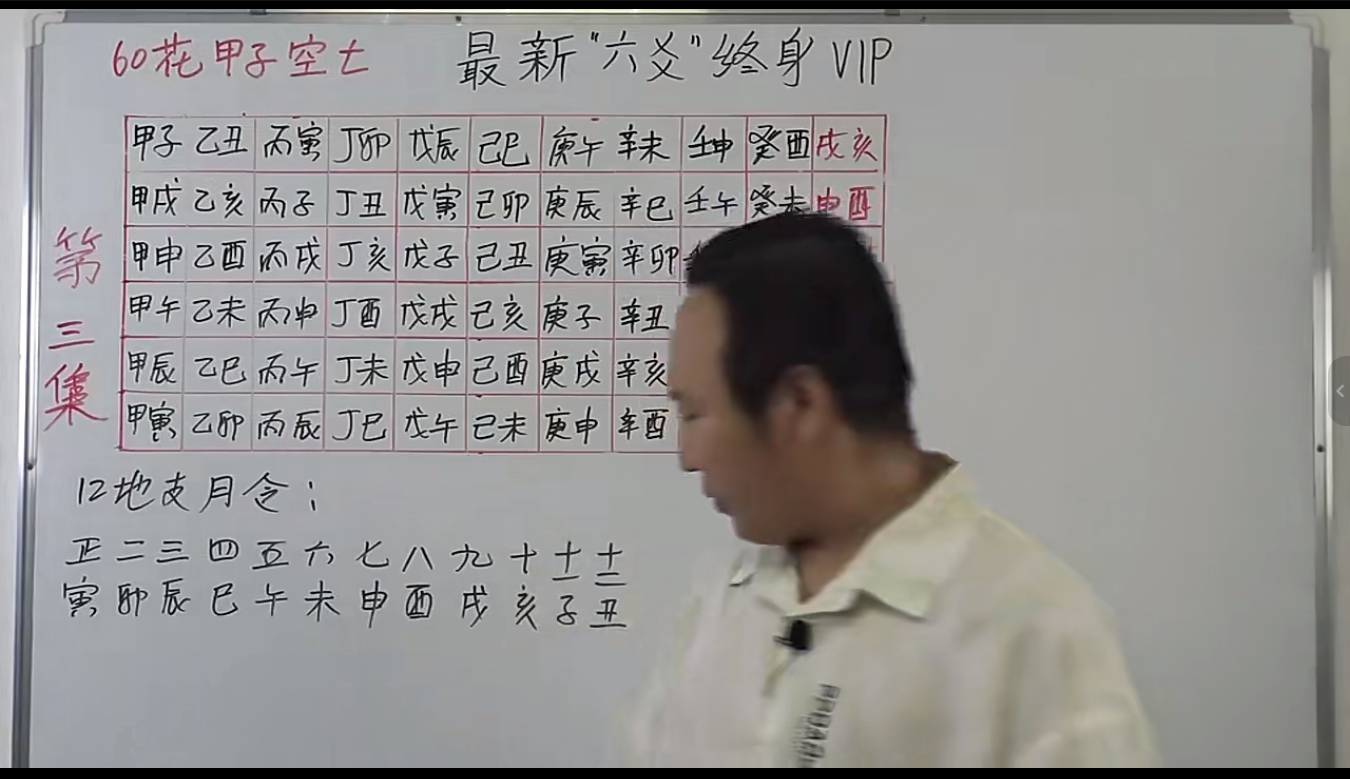 60花甲子空亡 最新"六爻"终身VIP
第三集
甲子 乙丑 丙寅 丁卯 戊辰 己巳 庚午 辛未 壬申 癸酉 戌亥
甲戌 乙亥 丙子 丁丑 戊寅 己卯 庚辰 辛巳 壬午 癸未 申酉
甲申 乙酉 丙戌 丁亥 戊子 己丑 庚寅 辛卯
甲午 乙未 丙申 丁酉 戊戌 己亥 庚子 辛丑
甲辰 乙巳 丙午 丁未 戊申 己酉 庚戌 辛亥
甲寅 乙卯 丙辰 丁巳 戊午 己未 庚申 辛酉
12地支月令:
正 二 三 四 五 六 七 八 九 十 十一 十二
寅 卯 辰 巳 午 未 申 酉 戌 亥 子 丑